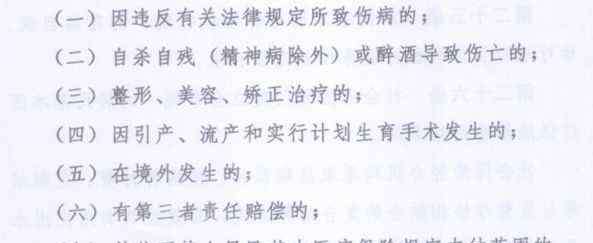 （一）因违反有关法律规定所致伤病的；
（二）自杀自残（精神病除外）或醉酒导致伤亡的；
（三）整形、美容、矫正治疗的；
（四）因引产、流产和实行计划生育手术发生的；
（五）在境外发生的；
（六）有第三者责任赔偿的；